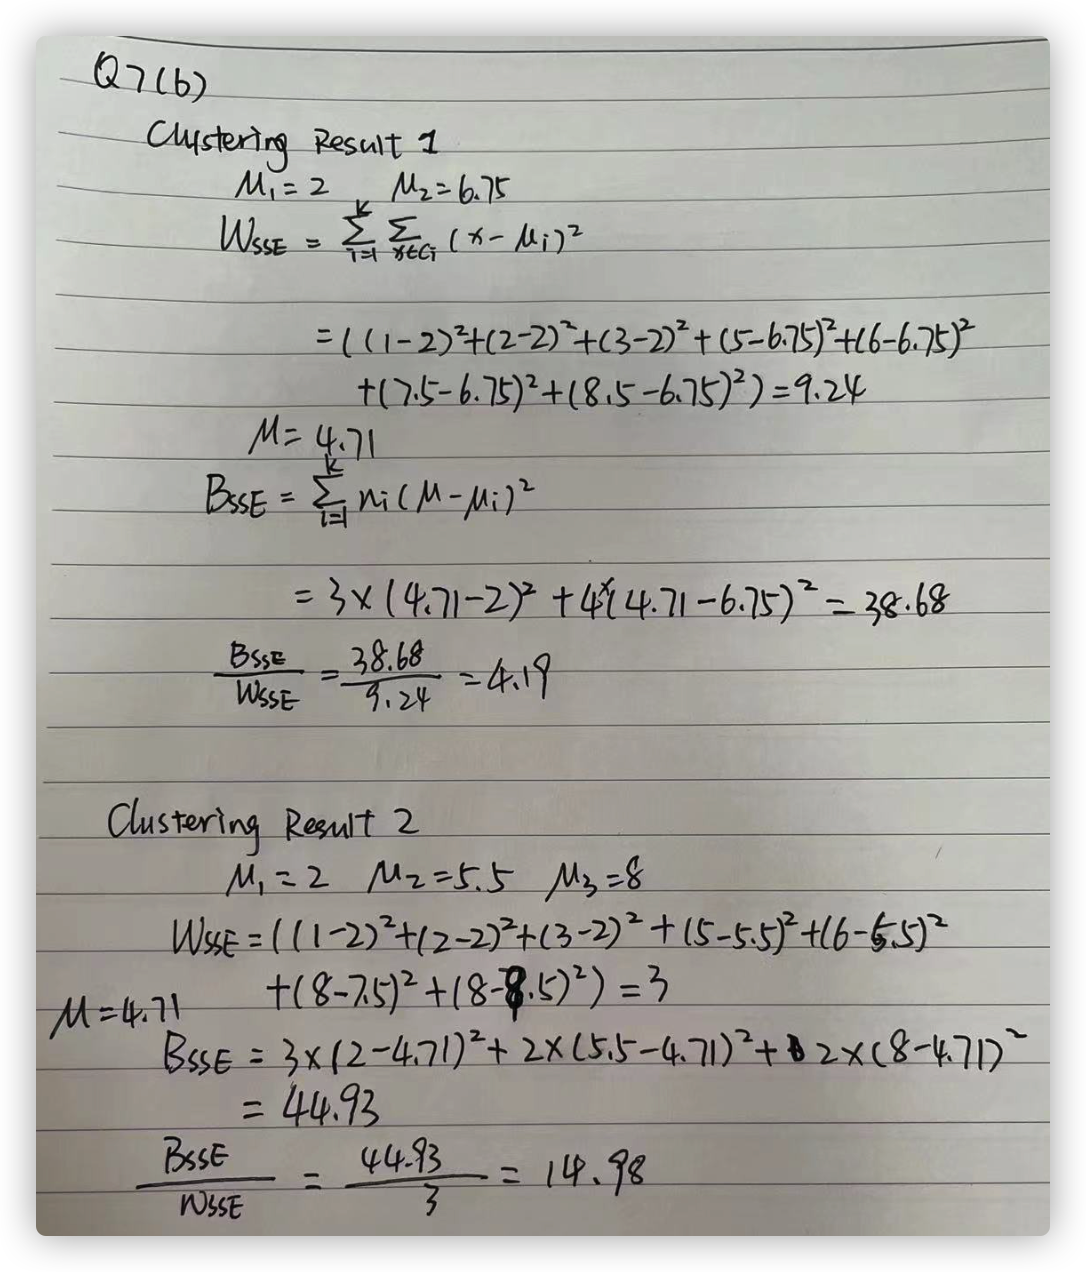 Q7(b)
Clustering Result 1
μ₁=2 μ₂=6.75
WSSE = Σᵢ₌₁ᴷ Σₓ∈Cᵢ (x-μᵢ)²
=((1-2)²+(2-2)²+(3-2)²+(5-6.75)²+(6-6.75)²
+(7.5-6.75)²+(8.5-6.75)²)=9.24
μ=4.71
BSSE = Σᵢ₌₁ᴷ nᵢ(μ-μᵢ)²
=3×(4.71-2)²+4×(4.71-6.75)²=38.68
BSSE/WSSE = 38.68/9.24 = 4.19
Clustering Result 2
μ₁=2 μ₂=5.5 μ₃=8
WSSE=((1-2)²+(2-2)²+(3-2)²+(5-5.5)²+(6-5.5)²
+(8-7.5)²+(8-8.5)²)=3
μ=4.71
BSSE=3×(2-4.71)²+2×(5.5-4.71)²+2×(8-4.71)²
=44.93
BSSE/WSSE = 44.93/3 = 14.98